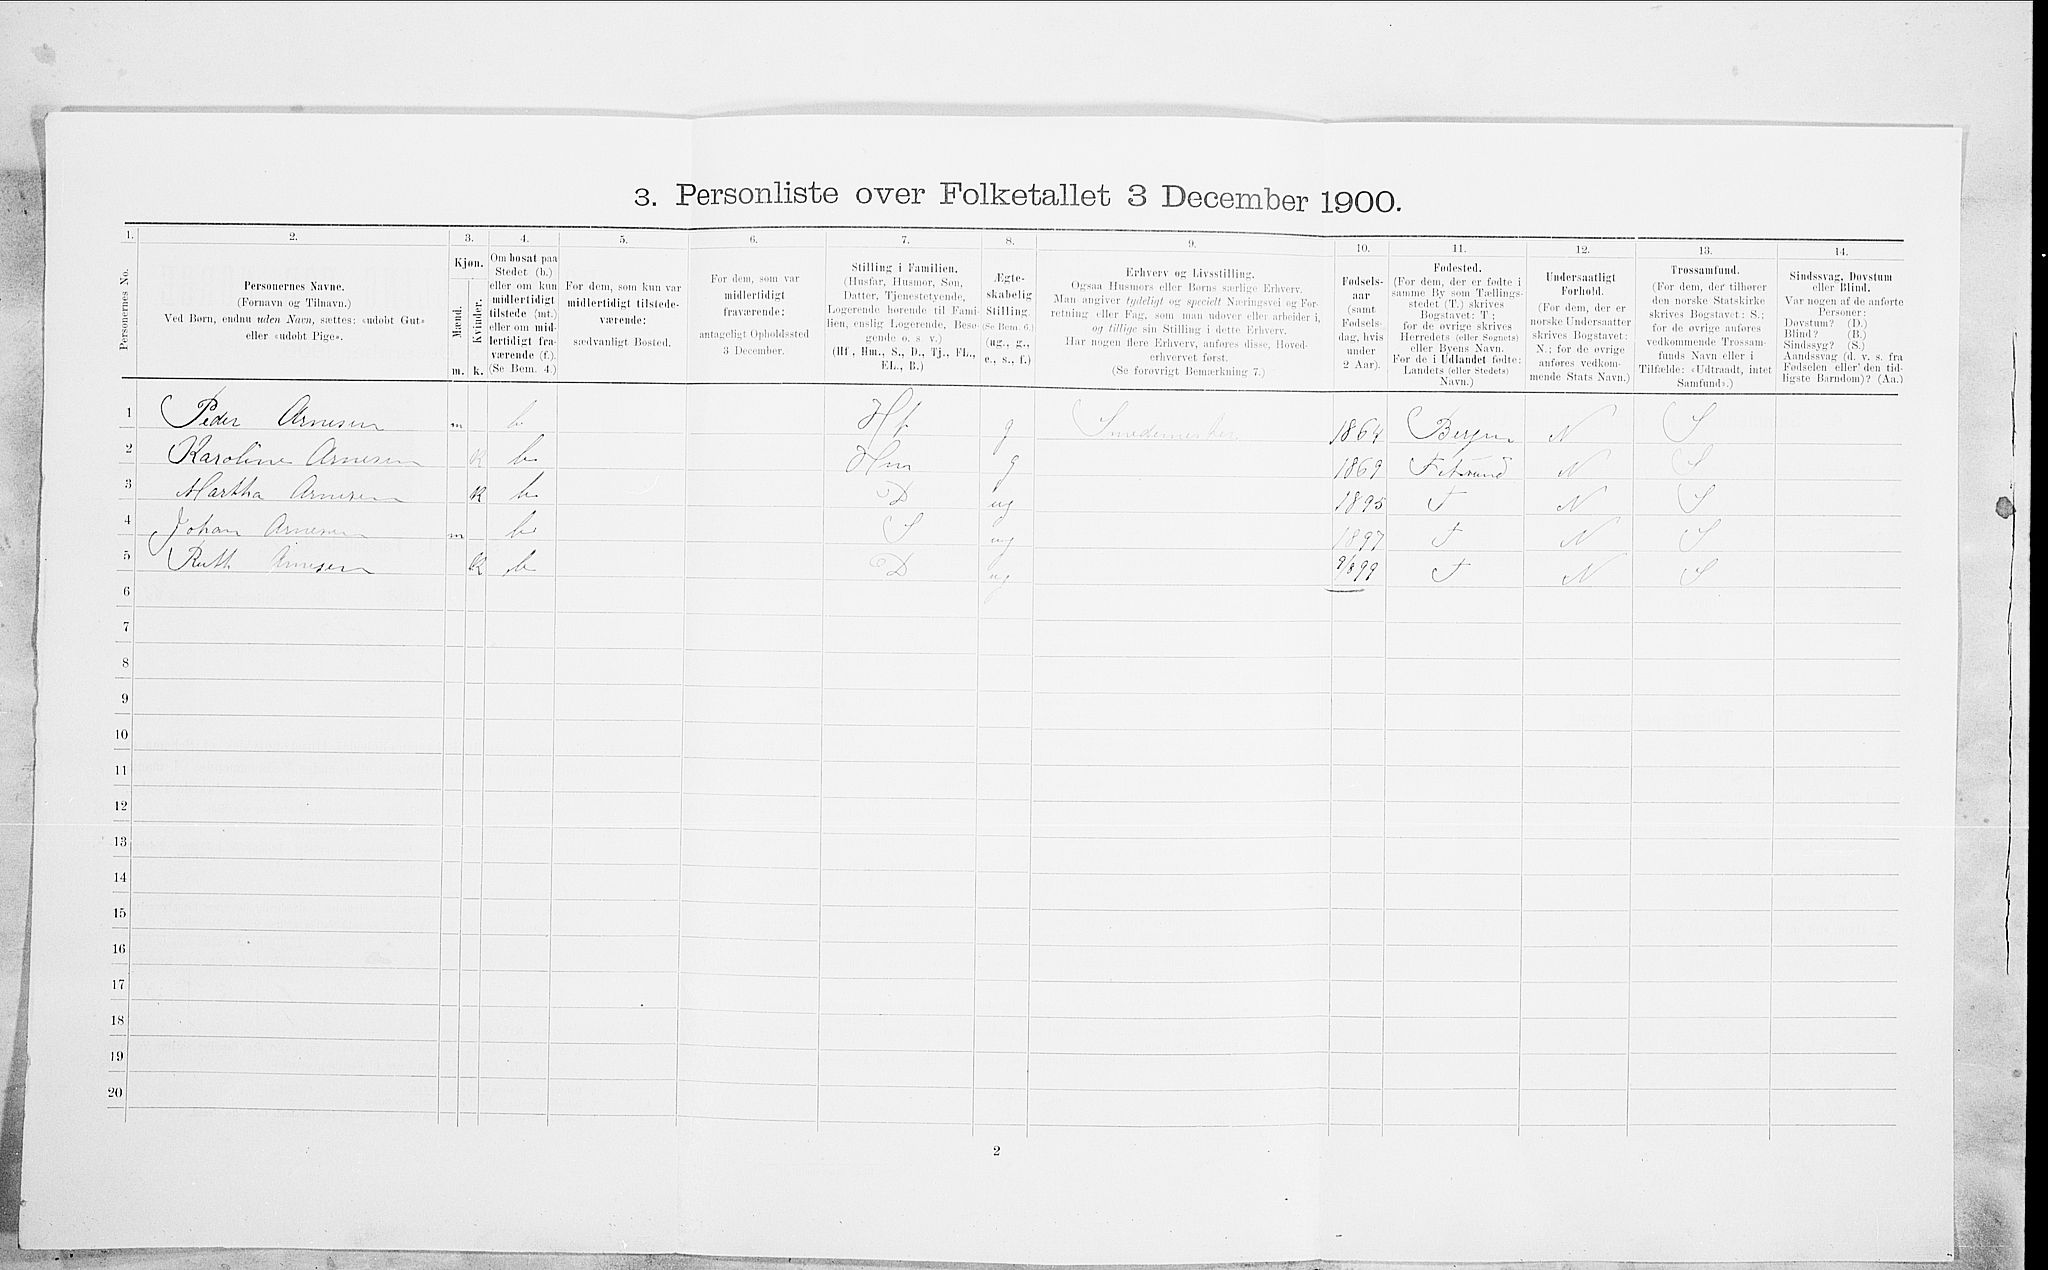 3. Personliste over Folketallet 3 December 1900.
1. 2. 3. 4. 5. 6. 7. 8. 9. 10. 11. 12. 13. 14.
Personernes No.
Personernes Navne.
(Fornavn og Tilnavn.)
Ved Børn, endnu uden Navn, sættes: «udøbt Gut»
eller «udøbt Pige».
Kjøn.
Mænd.
m.
Kvinder.
k.
Om bosat paa
Stedet (b.)
eller om kun
midlertidigt
tilstede (mt.)
eller om mid-
lertidigt fra-
værende (f.).
(Se Bem. 4.)
For dem, som kun var
midlertidigt tilstede-
værende:
sædvanligt Bosted.
For dem, som var
midlertidigt
fraværende:
antageligt Opholdssted
3 December.
Stilling i Familien.
(Husfar, Husmor, Søn,
Datter, Tjenestetyende,
Logerende hørende til Fami-
lien, enslig Logerende, Besø-
gende o. s. v.)
(Hf., Hm., S., D., Tj., FL.,
EL., B.)
Ægte-
skabelig
Stilling.
(Se Bem. 6.)
(ug., g.,
e., s., f.)
Erhverv og Livsstilling.
Ogsaa Husmors eller Børns særlige Erhverv.
Man angiver tydeligt og specielt Næringsvei og For-
retning eller Fag, som man udøver eller arbeider i,
og tillige sin Stilling i dette Erhverv.
Har nogen flere Erhverv, anføres disse, Hoved-
erhvervet først.
(Se forøvrigt Bemærkning 7.)
Fødsels-
aar
(samt
Fødsels-
dag, hvis
under
2 Aar).
Fødested.
(For dem, der er fødte i
samme By som Tællings-
stedet (T.) skrives
Bogstavet: T;
for de øvrige skrives
Herredets (eller Sognets)
eller Byens Navn.
For de i Udlandet fødte:
Landets (eller Stedets)
Navn.)
Undersaatligt
Forhold.
(For dem, der er
norske Undersaatter
skrives Bogstavet:
N.; for de øvrige
anføres vedkom-
mende Stats Navn.)
Trossamfund.
(For dem, der tilhører
den norske Statskirke
skrives Bogstavet: S.;
for de øvrige anføres
vedkommende Trossam-
funds Navn eller i
Tilfælde: «Udtraadt, intet
Samfund».)
Sindssvag, Døvstum
eller Blind.
Var nogen af de anførte
Personer:
Døvstum? (D.)
Blind? (B.)
Sindssyg? (S.)
Aandssvag (d. v. s. fra
Fødselen eller den tid-
ligste Barndom)? (Aa.)
1 Peder Arnesen m b Hf g Smedemester 1864 Bergen N S
2 Karoline Arnesen K b Hm g 1869 Fetsund N S
3 Martha Arnesen K b D ug 1895 T N S
4 Johan Arnesen m b S ug 1897 T N S
5 Ruth Arnesen K b D ug 9/8 99 T N S
6
7
8
9
10
11
12
13
14
15
16
17
18
19
20
2